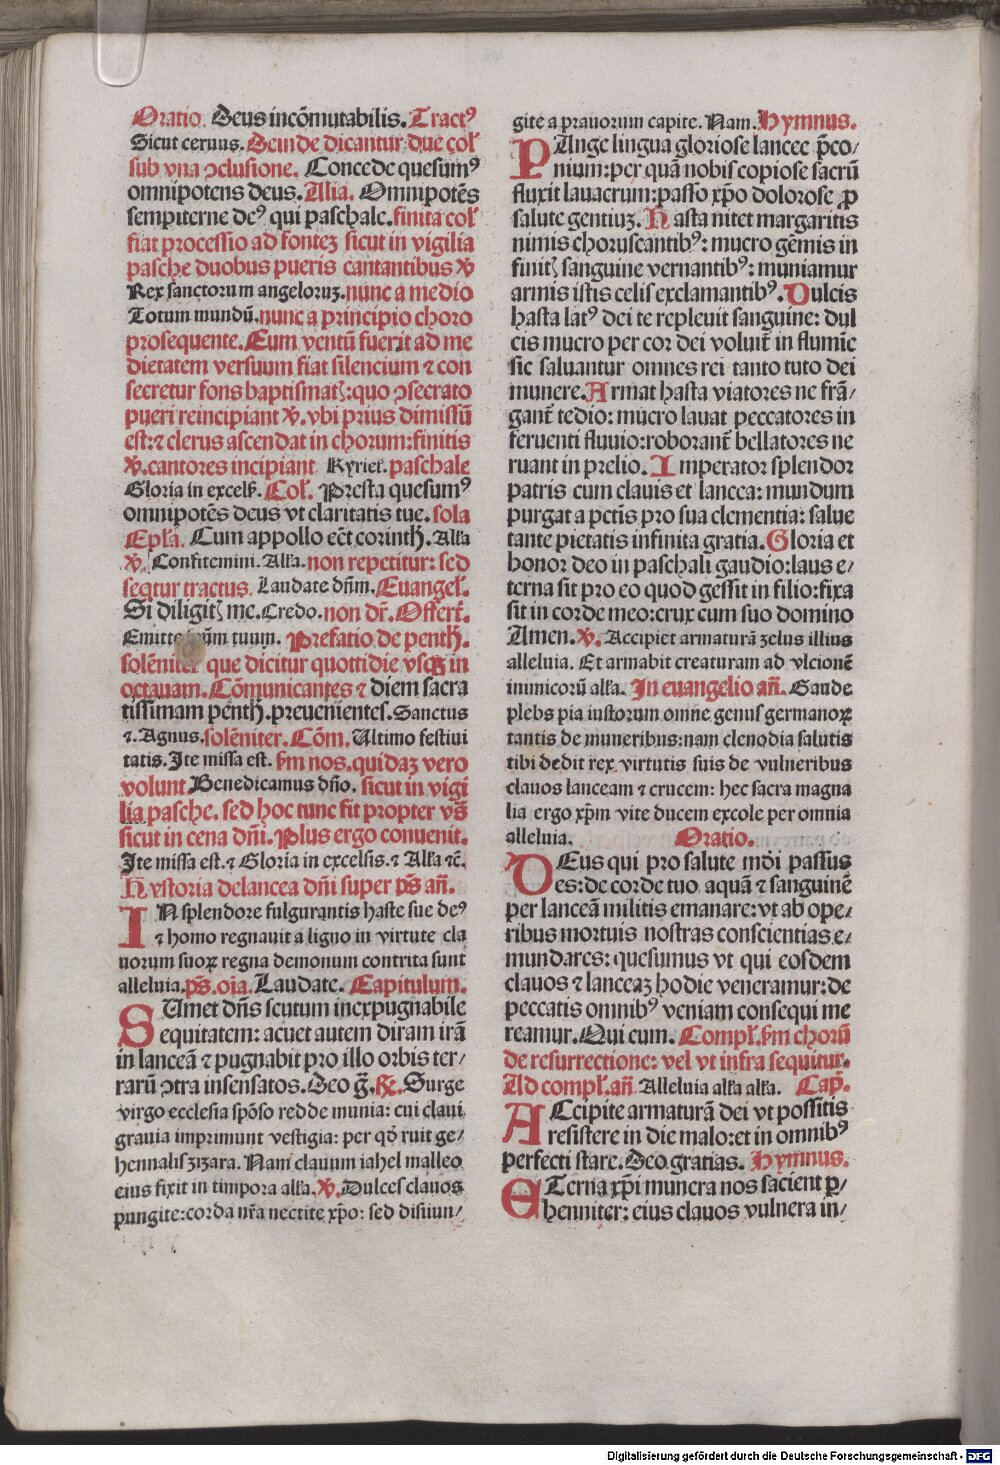 Oratio. Deus incõmutabilis. Tractꝰ
Sicut ceruus. Deinde dicantur due col̃
sub vna ↄclusione. Concede quesumꝰ
omnipotens deus. Alia. Omnipotẽs
sempiterne deꝰ qui paschale. finita col̃
fiat processio ad fontez sicut in vigilia
pasche duobus pueris cantantibus ℣
Rex sanctorum angeloruz. nunc a medio
Totum mundũ. nunc a principio choro
prosequente. Cum ventũ fuerit ad me
dietatem versuum fiat silencium ⁊ con
secretur fons baptismatꝭ: quo ↄsecrato
pueri reincipiant ℣. vbi prius dimissũ
est: ⁊ clerus ascendat in chorum: finitis
℣. cantores incipiant Kyriel̃. paschale
Gloria in excelß. Col̃. Presta quesumꝰ
omnipotẽs deus vt claritatis tue. sola
Epl̃a. Cum appollo eẽt corinth̃. Alľa
℣. Confitemini. Alľa. non repetitur: sed
seqtur tractus. Laudate dñm. Euangel̃.
Si diligitꝭ me. Credo. non dr̃. Offert̃.
tuum. Prefatio de penth̃.
solẽniter que dicitur quottidie vsqꝫ in
octauam. Cõmunicantes ⁊ diem sacra
tissimam penth̃. preuenientes. Sanctus
⁊. Agnus. solẽniter. Cõm. Ultimo festiui
tatis. Ite missa est. ßm nos. quidaz vero
volunt Benedicamus dño. sicut in vigi
lia pasche. sed hoc tunc fit propter vs̃
sicut in cena dñi. Plus ergo conuenit.
Ite missa est. ⁊ Gloria in excelsis. ⁊ Alľa ⁊c̃.
Hystoria de lancea dñi super ps̃ añ.
IN splendore fulgurantis haste sue deꝰ
⁊ homo regnauit a ligno in virtute cla
uorum suoꝝ regna demonum contrita sunt
alleluia. ps̃. oĩa. Laudate. Capitulum.
SUmet dñs scutum inexpugnabile
equitatem: acuet autem diram irã
in lanceã ⁊ pugnabit pro illo orbis ter⸗
rarũ ↄtra insensatos. Deo g̃. ℟. Surge
virgo ecclesia spõso redde munia: cui claui
grauia imprimunt vestigia: per qđ ruit ge⸗
hennalis zizara. Nam clauum iahel malleo
eius fixit in timpora alľa. ℣. Dulces clauos
pungite: corda nr̃a nectite xp̃o: sed disiun⸗
gite a prauorum capite. Nam. Hymnus.
PAnge lingua gloriose lancee p̃co⸗
nium: per quã nobis copiose sacrũ
fluxit lauacrum: passo xp̃o dolorose ꝓ
salute gentiuz. Hasta nitet margaritis
nimis choruscantibꝰ: mucro gẽmis in
finitꝭ sanguine vernantibꝰ: muniamur
armis istis celis exclamantibꝰ. Dulcis
hasta latꝰ dei te repleuit sanguine: dul
cis mucro per cor dei voluit̃ in flumĩe
sic saluantur omnes rei tanto tuto dei
munere. Armat hasta viatores ne frã⸗
gant̃ tedio: mucro lauat peccatores in
feruenti fluuio: roborant̃ bellatores ne
ruant in prelio. Imperator splendor
patris cum clauis et lancea: mundum
purgat a pctĩs pro sua clementia: salue
tante pietatis infinita gratia. Gloria et
honor deo in paschali gaudio: laus e⸗
terna sit pro eo quod gessit in filio: fixa
sit in corde meo: crux cum suo domino
Amen. ℣. Accipiet armaturã zelus illius
alleluia. Et armabit creaturam ad vlcionẽ
inimicorũ alľa. In euangelio añ. Gaude
plebs pia iustorum omne genus germanoꝝ
tantis de muneribus: nam clenodia salutis
tibi dedit rex virtutis suis de vulneribus
clauos lanceam ⁊ crucem: hec sacra magna
lia ergo xp̃m vite ducem excole per omnia
alleluia. Oratio.
DEus qui pro salute mũdi passus
es: de corde tuo aquã ⁊ sanguinẽ
per lanceã militis emanare: vt ab ope⸗
ribus mortuis nostras conscientias e⸗
mundares: quesumus vt qui eosdem
clauos ⁊ lanceaz hodie veneramur: de
peccatis omnibꝰ veniam consequi me
reamur. Qui cum. Compl̃. ßm chorũ
de resurrectione: vel vt infra sequitur.
Ad compl̃. añ. Alleluia alľa alľa. Cap̃.
ACcipite armaturã dei vt possitis
resistere in die malo: et in omnibꝰ
perfecti stare. Deo gratias. Hymnus.
ETerna xp̃i munera nos sacient ꝑ⸗
henniter: eius clauos vulnera in⸗
Digitalisierung gefördert durch die Deutsche Forschungsgemeinschaft - DFG